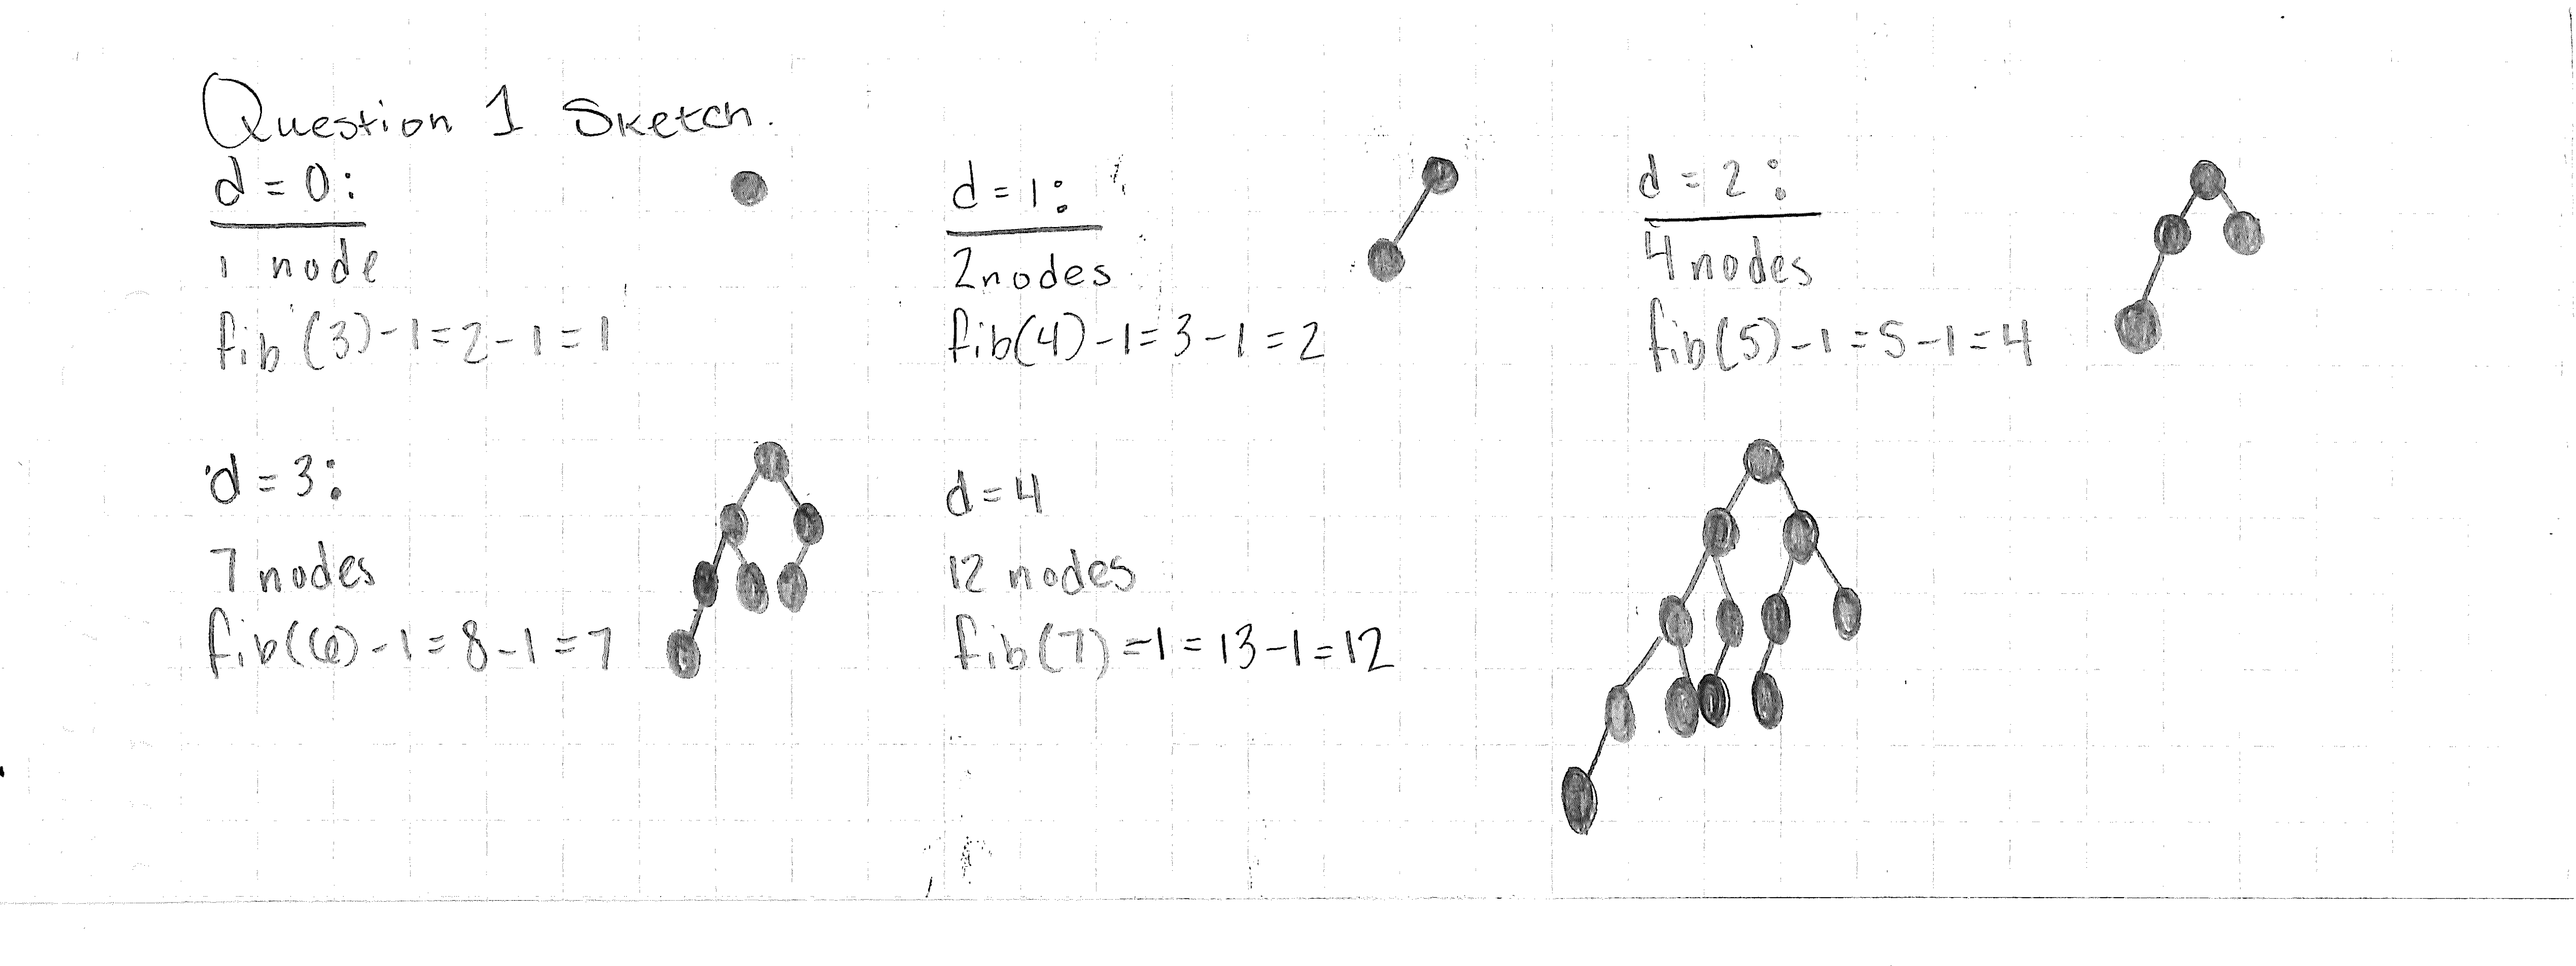 Question 1 Sketch.
d = 0:
1 node
fib(3)-1=2-1=1
d = 1:
2nodes
fib(4)-1=3-1=2
d = 2:
4 nodes
fib(5)-1=5-1=4
d = 3:
7 nodes
fib(6)-1=8-1=7
d = 4
12 nodes
fib(7)-1=13-1=12